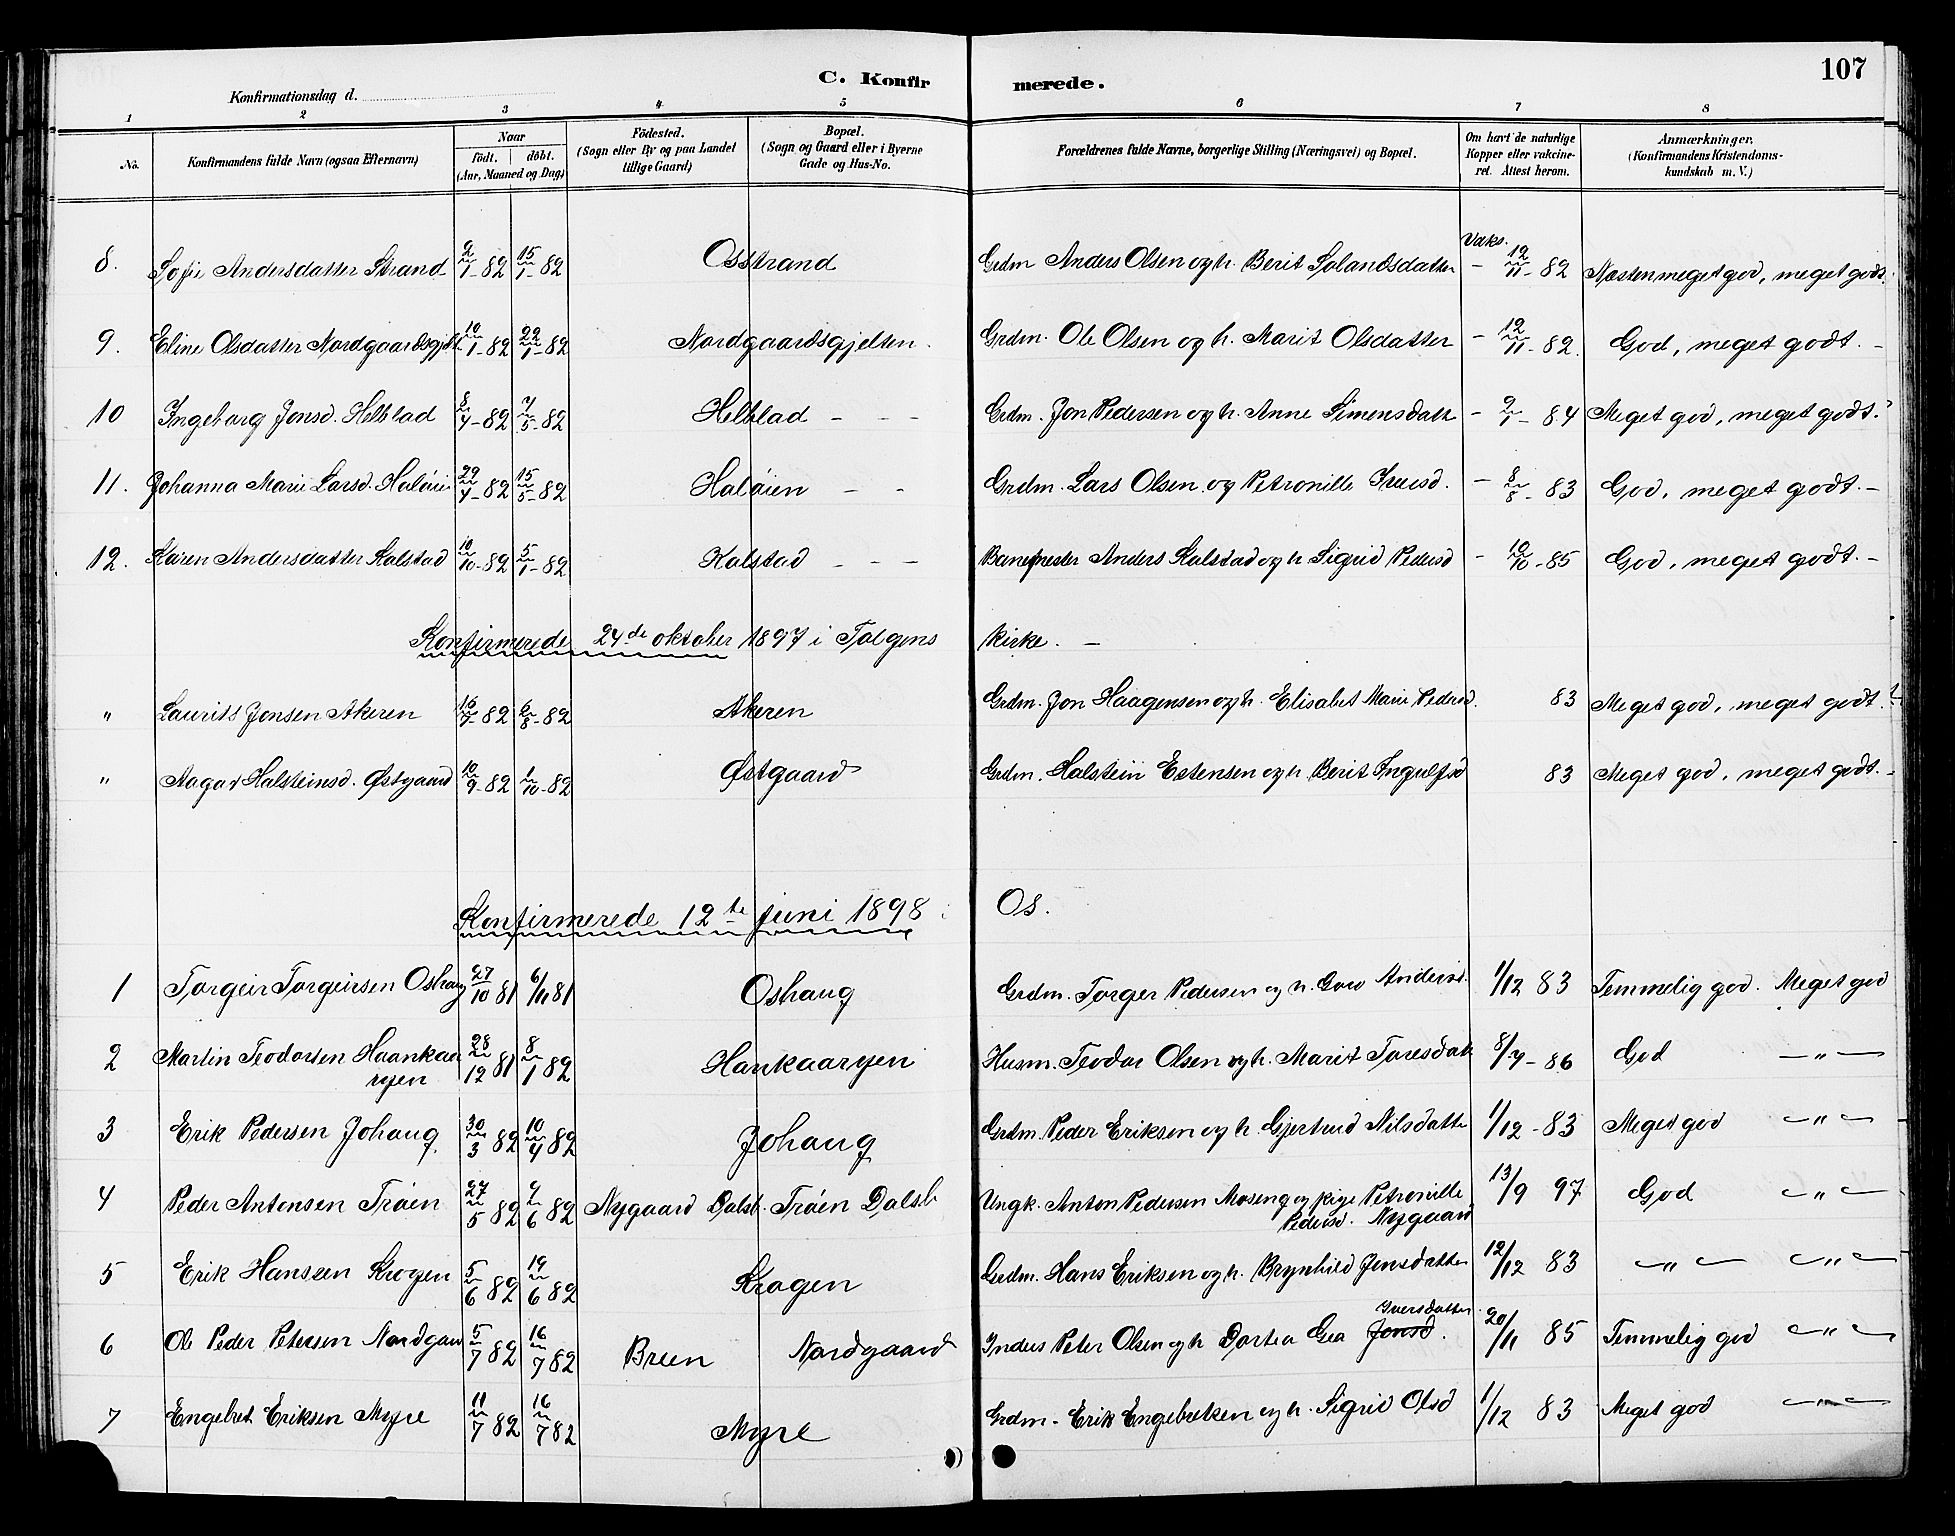 107
C. Konfir merede.
Konfirmationsdag d.
1 2 3 4 5 6 7 8
No.
Konfirmandens fulde Navn (ogsaa Efternavn)
Naar
födt. döbt.
(Aar, Maaned og Dag)
Födested.
(Sogn eller By og paa Landet
tillige Gaard)
Bopæl.
(Sogn og Gaard eller i Byerne
Gade og Hus-No.
Forældrenes fulde Navne, borgerlige Stilling (Næringsvei) og Bopæl.
Om havt de naturlige
Kopper eller vakcine-
ret. Attest herom.
Anmærkninger.
(Konfirmandens Kristendoms-
kundskab m. V.)
8. Sofie Andersdatter Strand 2/1-82 15/1-82 Osstrand Grdm Anders Olsen og h. Berit Tolandsdatter Vaks. - 12/11-82 Næsten meget god, meget godt.
9. Eline Olsdatter Nordgaardsgjelt. 10/1-82 22/1-82 Nordgaardsgjelten. Grdm. Ole Olsen og h. Marit Olsdatter - 12/11-82. God, meget godt. -
10 Ingeborg Jonsd. Helblad 8/4-82 7/5-82 Helblad - - - Grdm. Jon Pedersen og h. Anne Simensdatt - 9/1-84 Meget god, meget godt.
11. Johanna Marie Larsd. Haløie 29/4-82 15/5-82 Haløien - - Grdm. Lars Olsen og Petronille Iversd. - 8/8-83 God, meget godt. -
12. Karen Andersdatter Kalstad 10/10-82 5/1-82 Kalstad - - - Banemester Anders Kalstad og h Sigrid Pedersd - 10/10-85 God, meget godt. -
Konfirmerede 24de oktober 1897 i Tolgens Kirke. -
" Laurits Jonsen Akeren 16/7-82 6/8-82 Akeren Grdm. Jon Haagensen og h. Elisabet Marie Pedersd. 83 Meget god, meget godt.
" Aagat Halsteinsd. Østgaard 10/9-82 1/10-82 Østgaard Grdm. Halstein Estensen og h Berit Ingulfsd 83 Meget god, meget godt. -
Konfirmerede 12te juni 1898 i Os.
1 Torgeir Torgeirsen Oshaug 27/10 81 6/11 81 Oshaug Grdm. Torger Pedersen og h. Goro Andersd. 1/12 83 Temmelig god. Meget god
2 Martin Teodorsen Haankaa
ryen 28/12 81 8/1 82 Hankaaryen Husm. Teodor Olsen og h. Marit Toresdatt 8/7-86 God -"-
3 Erik Pedersen Johaug 30/3 82 10/4 82 Johaug Grdm. Peder Eriksen og h. Gjertrud Nilsdatte 1/12-83 Meget god -"-
4 Peder Antonsen Trøen 27/5 82 9/6 82 Nygaard Dalsb. Trøen Dalsb Ungk. Anton Pedersen Moseng og pige Petronille
Pedersd. Nygaard 13/9 97 God -"-
5 Erik Hansen Krogen 5/6 82 19/6 82 Krogen Grdm. Hans Eriksen og h. Brynhild Jonsdatter 12/12 83 -"- -"-
6 Ole Peder Petersen Nordgaar 5/7 82 16/7 82 Breen Nordgaard Inders Peter Olsen og h Dortea Gea Jonsd. Iversdatter 20/11 85 Temmelig god -"-
7 Engebret Eriksen Myre 11/7 82 16/7 82 Myre Grdm. Erik Engebretsen og h. Sigrid Olsd 1/12 83 Meget god -"-